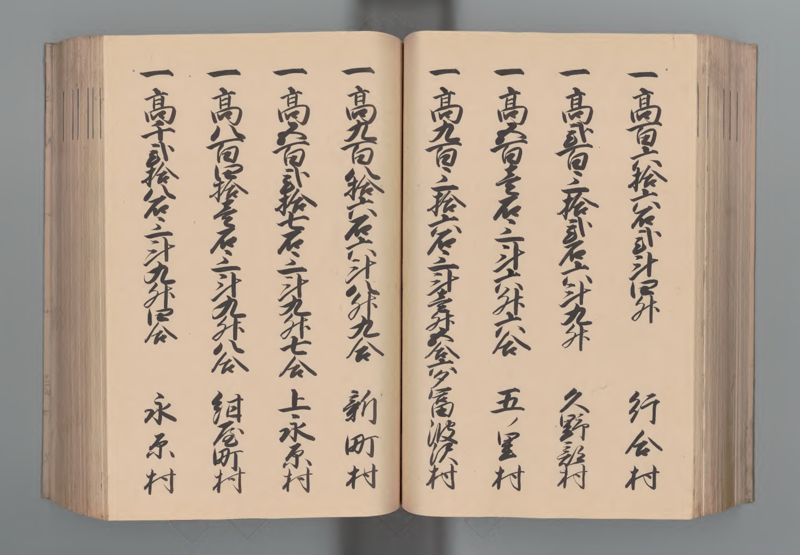 一高百六拾六石弐斗四升 行合村
一高弐百三拾弐石六斗九升 久野部村
一高五百壱石三斗六升六合 五ノ里村
一高九百三拾六石三斗壱升五合六夕 冨波沢村
一高九百八拾六石六斗八升九合 新町村
一高五百弐拾七石三斗九升七合 上永原村
一高八百四拾壱石三斗九升八合 紺屋町村
一高千弐拾八石三斗九升四合 永原村